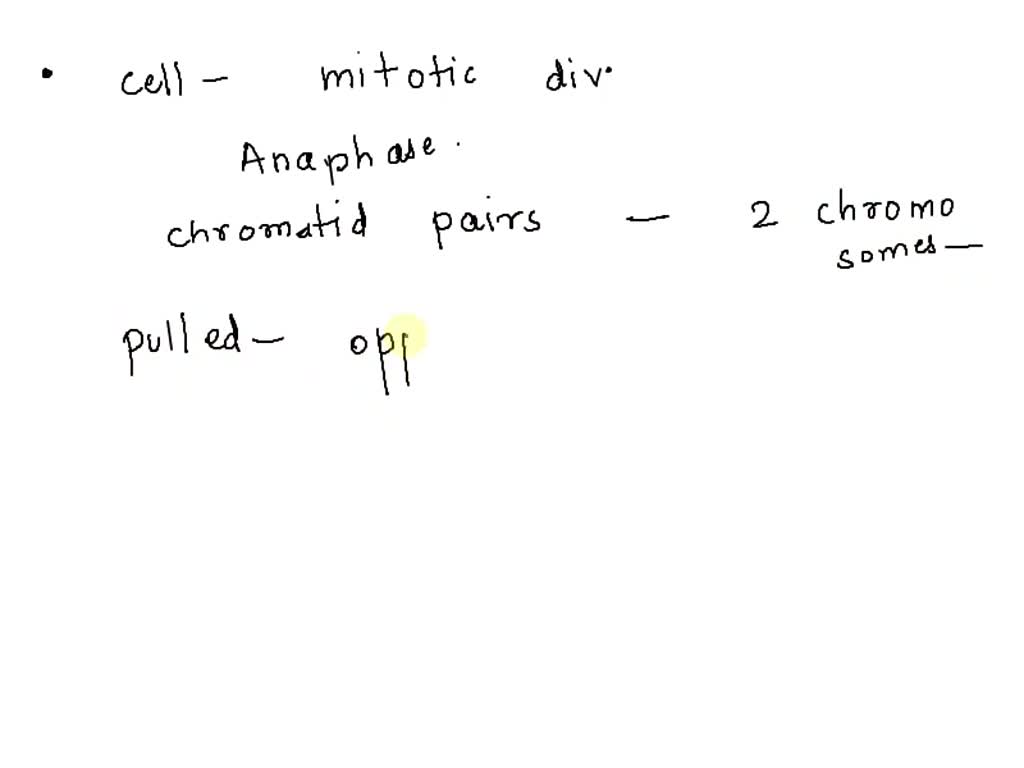 • cell – mitotic div.
Anaphase.
chromatid pairs – 2 chromo
somes –
pulled – opp